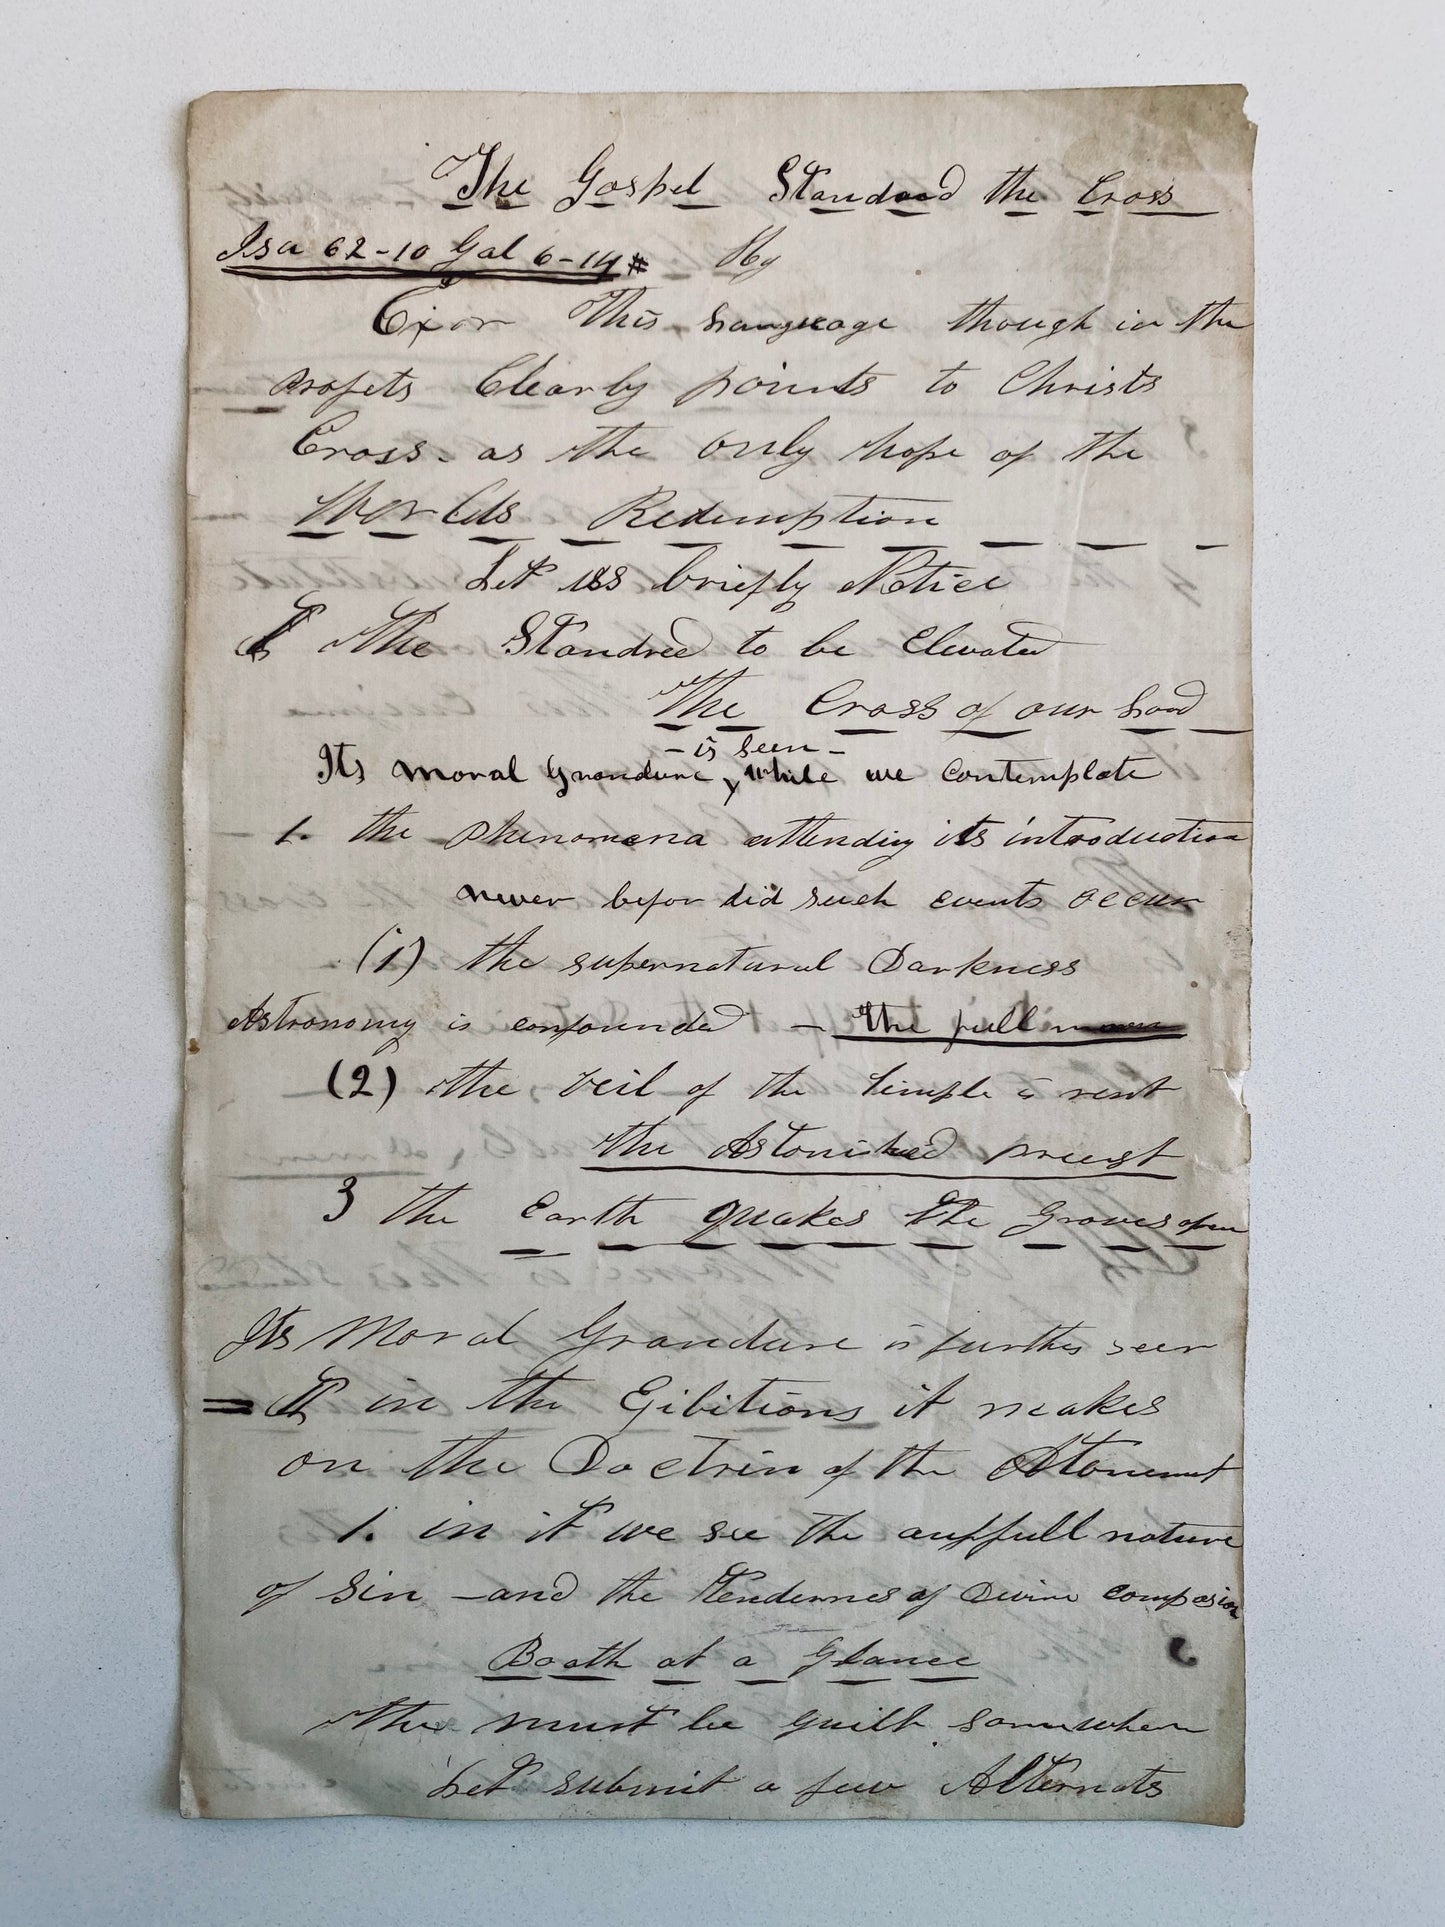 The Gospel Standard the Cross
Isa 62-10 Gal 6-14 # Hy
Exor This Language though in the
Profets Clearly points to Christs
Cross. as the only hope of the
Worlds Redemption
Let us briefly Notice
I The Standred to be Elevated
The Cross of our Lord
- is seen -
Its moral Grandure, while we contemplate
1. the Phenomena attending its introduction
never befor did such events occur
(1) the supernatural Darkness
Astronomy is confounded - the full moon
(2) the Veil of the Temple is rent
the Astonished priest
3 the Earth quakes the Graves open
Its Moral Grandure is further seen
= I in the Exibitions it makes
on the Doctrin of the Atonement
1. in it we see the aufull nature
of Sin - and the Tendernes of Divine compasion
Booth at a Glance
the must be guilt somewhere
Let submit a few Alternats